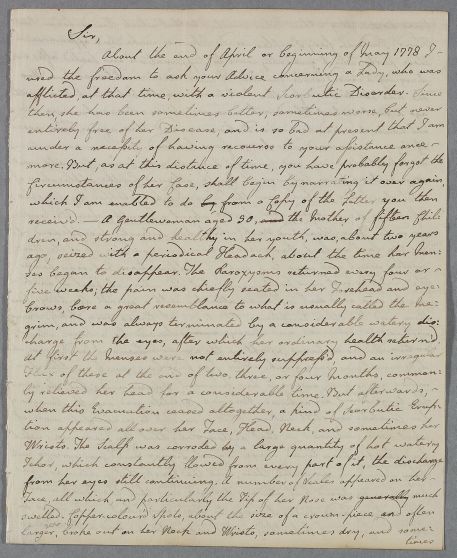 Sir,
About the end of April or beginning of May 1778 I
used the freedom to ask your Advice concerning a Lady, who was
afflicted, at that time, with a violent Scorbutic Disorder. Since
then, she has been sometimes better, sometimes worse, but never
entirely free of her Disease, and is so bad at present that I am
under a necessity of having recourse to your assistance once
more. But, as at this distance of time, you have probably forgot the
Circumstances of her Case, shall begin by narrating it over again,
which I am enabled to do by from a Copy of the Letter you then
received. — A Gentlewoman aged 50, and the Mother of fifteen Chil
dren, and strong and healthy in her youth, was, about two years
ago, seized with a periodical Headach, about the time her Men-
ses began to disappear. The Paroxysms returned every four or
five weeks; the pain was chiefly seated in her Forehead and eye
brows, bore a great resemblance to what is usually called the Me-
grim, and was always terminated by a considerable watery dis-
charge from the eyes, after which her ordinary health returnd.
At first the Menses were not entirely suppressd, and an irregular
Flux of these at the end of two, three, or four months, common-
ly relieved her head for a considerable time. But afterwards,
when this Evacuation ceased altogether, a kind of Scorbutic Erup-
tion appeared all over her Face, Head, Neck, and sometimes her
Wrists. The Scalp was corroded by a large quantity of hot watery
Ichor, which constantly flowed from every part of it, the discharge
from her eyes still continuing. A number of Scales appeared on her
Face, all which and particularly the Tip of her Nose was generally much
swelled. Copper-colourd Spots, about the size of a crown-piece and often
larger, broke out on her Neck and Wrists, sometimes dry, and some-
times